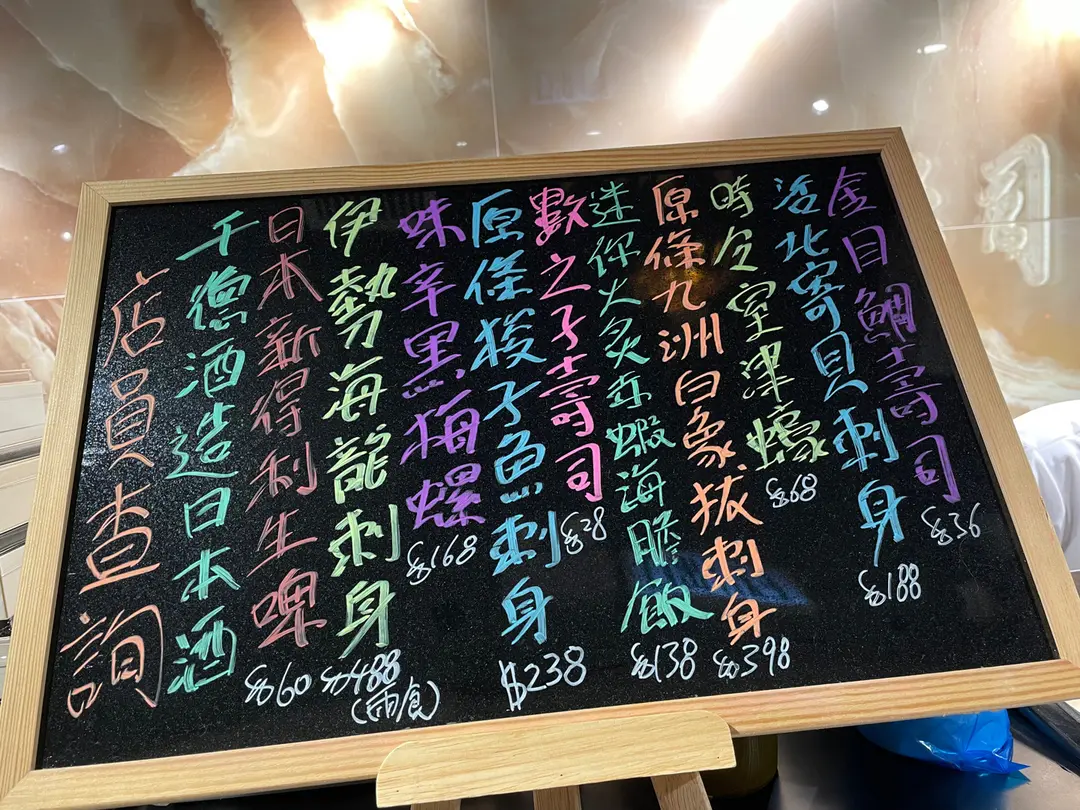 金目鯛壽司 $36
活北寄貝刺身 $188
時令室津蠔 $68
原條九洲白象拔刺身 $398
迷你火炙赤蝦海膽飯 $138
數之子壽司 $28
原條梭子魚刺身 $238
味辛黑梅螺 $168
伊勢海龍刺身 $488
(兩食)
日本新得利生啤 $60
千德酒造日本酒
店員查詢